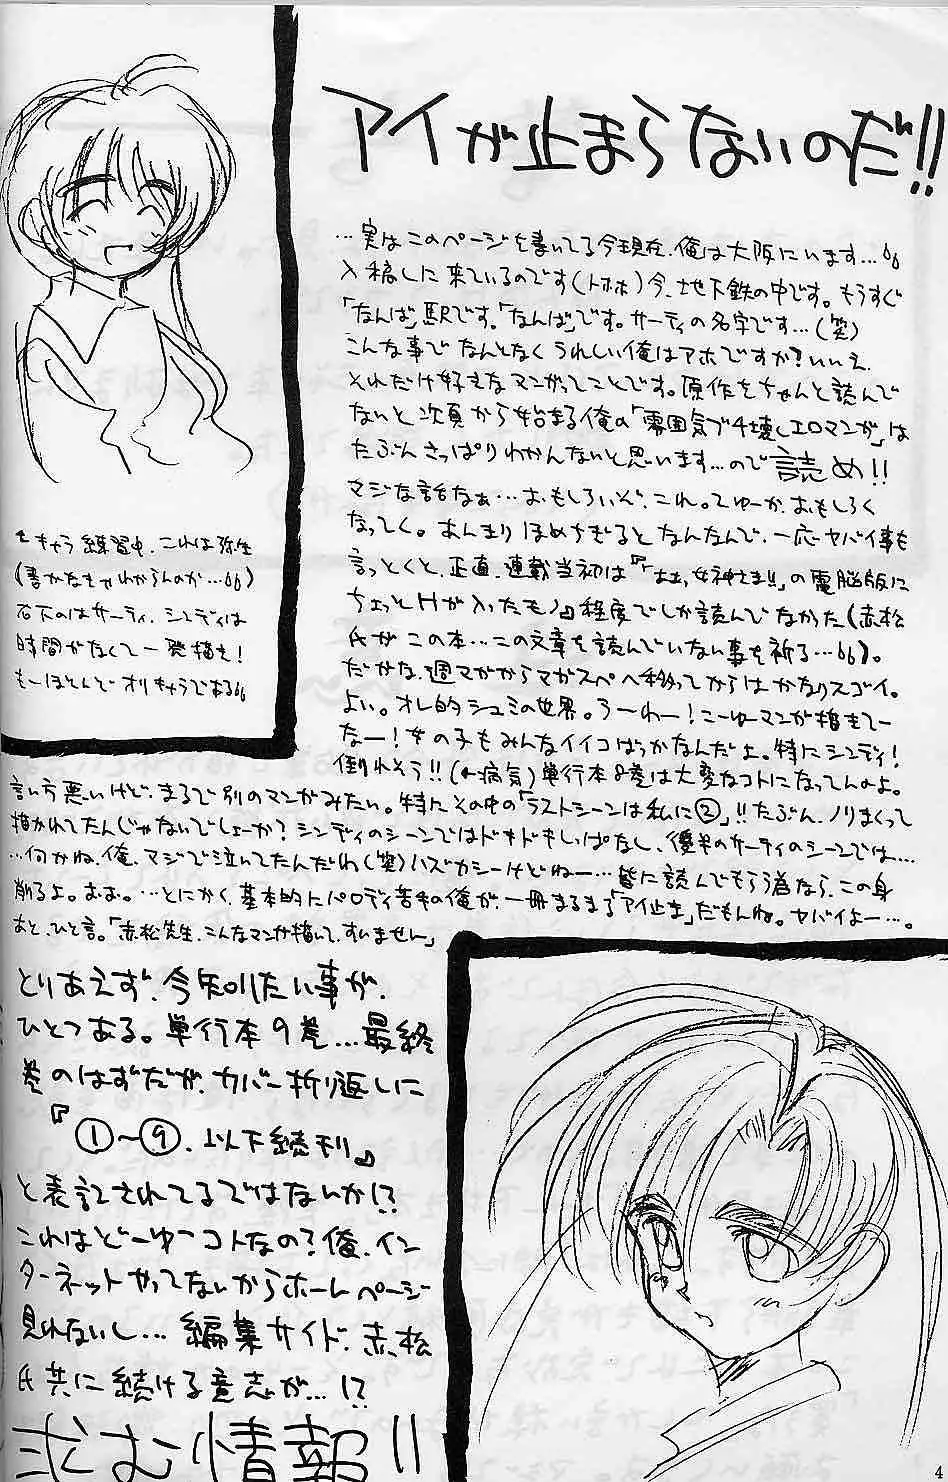 アイが止まらないのだ!!
…実はこのページを書いてる今現在、俺は大阪にいます…66
入稿しに来ているのです(トホホ)今、地下鉄の中です。もうすぐ
「なんば」駅です。「なんば」です。サーティの名字です…(笑)
こんな事でなんとなくうれしい俺はアホですか?いいえ
それだけ好きなマンガってことです。原作をちゃんと読んで
ないと次頁から始まる俺の「雰囲気ブチ壊しエロマンガ」は
たぶんさっぱりわかんないと思います…ので読め!!
マジな話なぁ…おもしろいぞ、これ。てゆーか、おもしろく
なってく。あんまりほめちぎるとなんなんで、一応ヤバイ事も
言っとくと、正直、連載当初は『ああっ女神さまっ!!』の電脳版に
ちょっとHが入ったモノ程度でしか読んでなかった(赤松
氏がこの本…この文章を読んでいない事を祈る…66)。
だがな、週マガからマガスペへ移ってからはかなりスゴイ。
よい。オレ的シュミの世界。うーわー!こーゆーマンガ描きてー
なー!女の子もみんなイイコばっかなんだよ。特にシンディ!
倒れそう!!(←病気)単行本8巻は大変なコトになってんのよ。
言い方悪いけど、まるで別のマンガみたい。特にその中の「ラストシーンは私に②」!!たぶん、ノリまくって
描かれてたんじゃないでしょーか?シンディのシーンではドキドキしっぱなし、後半のサーティのシーンでは…
…何かね、俺、マジで泣いてたんだわ(笑)ハズカシーけどねー…皆に読んでもらう為なら、この身
削るよ。おお。…とにかく、基本的にパロディ苦手の俺が、一冊まるまる「アイ止ま」だもんね。ヤバイよー…。
あと、ひと言。「赤松先生、こんなマンガ描いて、すいません」
キャラ練習中、これは弥生
(書かなきゃわからんのか…66)
右下のはサーティ、シンディは
時間がなくて一発描き!
もーほとんどオリキャラである66
とりあえず、今知りたい事が、
ひとつある。単行本9巻…最終
巻のはずだが、カバー折り返しに
『①〜⑨、以下続刊』
と表記されてるではないか!?
これはどーゆーコトなの?俺、イン
ターネットやってないからホームページ
見れないし…編集サイド、赤松
氏共に続ける意志が…!?
求む情報!!
4